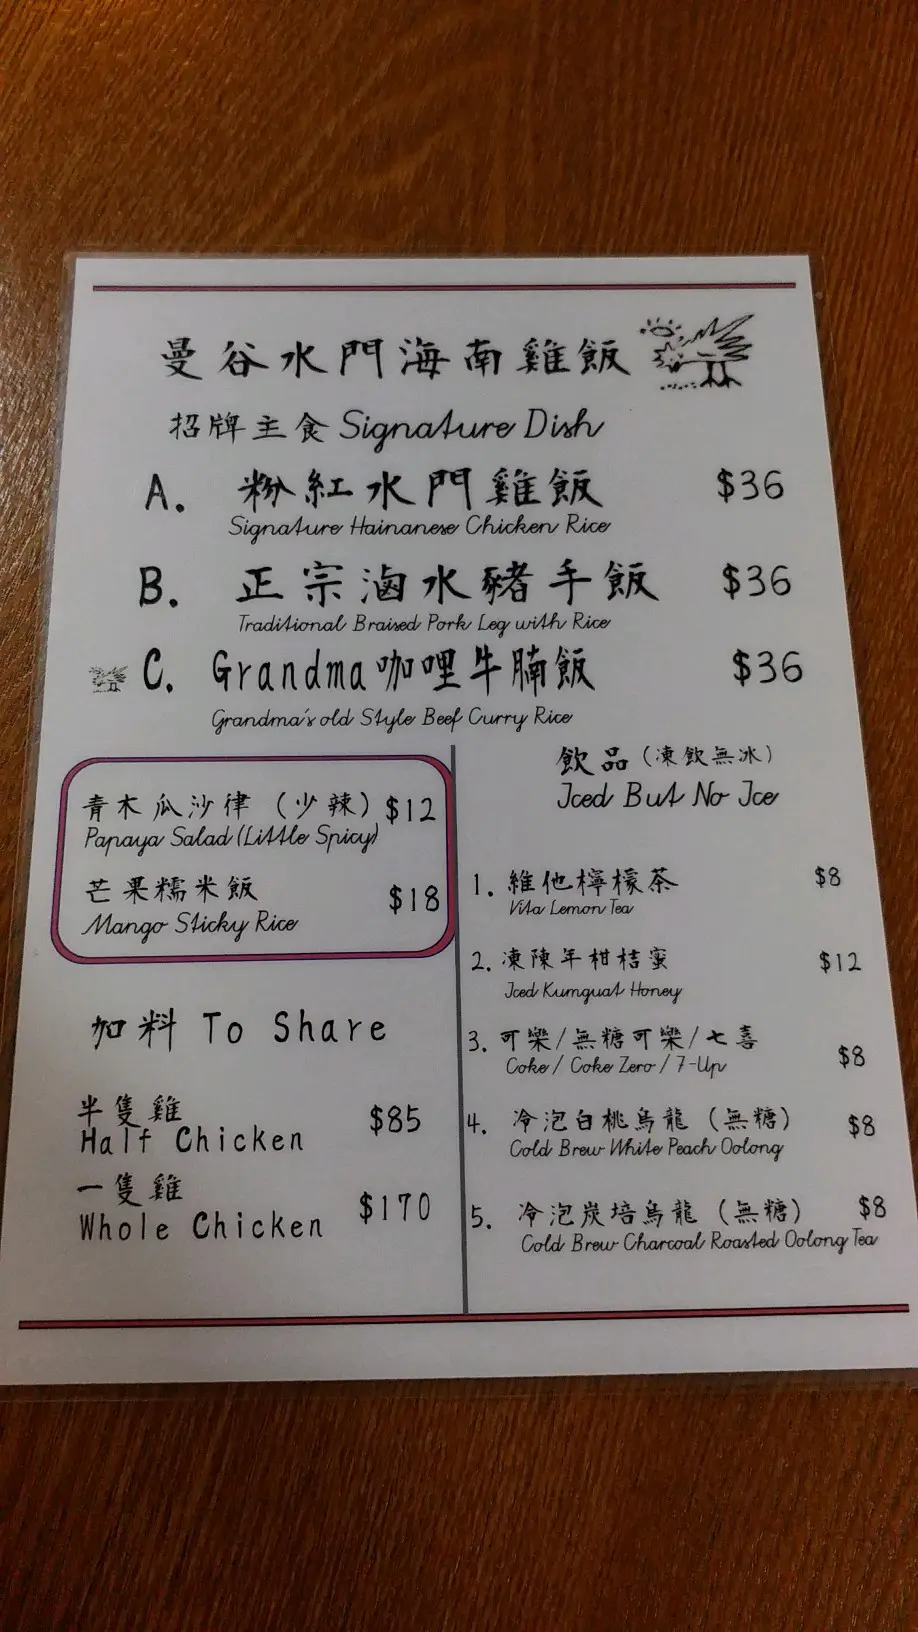 曼谷水門海南雞飯
招牌主食 Signature Dish
A. 粉紅水門雞飯 $36
Signature Hainanese Chicken Rice
B. 正宗滷水豬手飯 $36
Traditional Braised Pork Leg with Rice
C. Grandma咖哩牛腩飯 $36
Grandma's old Style Beef Curry Rice
青木瓜沙律（少辣）$12
Papaya Salad (Little Spicy)
芒果糯米飯 $18
Mango Sticky Rice
加料 To Share
半隻雞
Half Chicken $85
一隻雞
Whole Chicken $170
飲品（凍飲無冰）
Iced But No Ice
1. 維他檸檬茶 $8
Vita Lemon Tea
2. 凍陳年柑桔蜜 $12
Iced Kumquat Honey
3. 可樂/無糖可樂/七喜 $8
Coke / Coke Zero / 7-Up
4. 冷泡白桃烏龍（無糖） $8
Cold Brew White Peach Oolong
5. 冷泡炭培烏龍（無糖） $8
Cold Brew Charcoal Roasted Oolong Tea